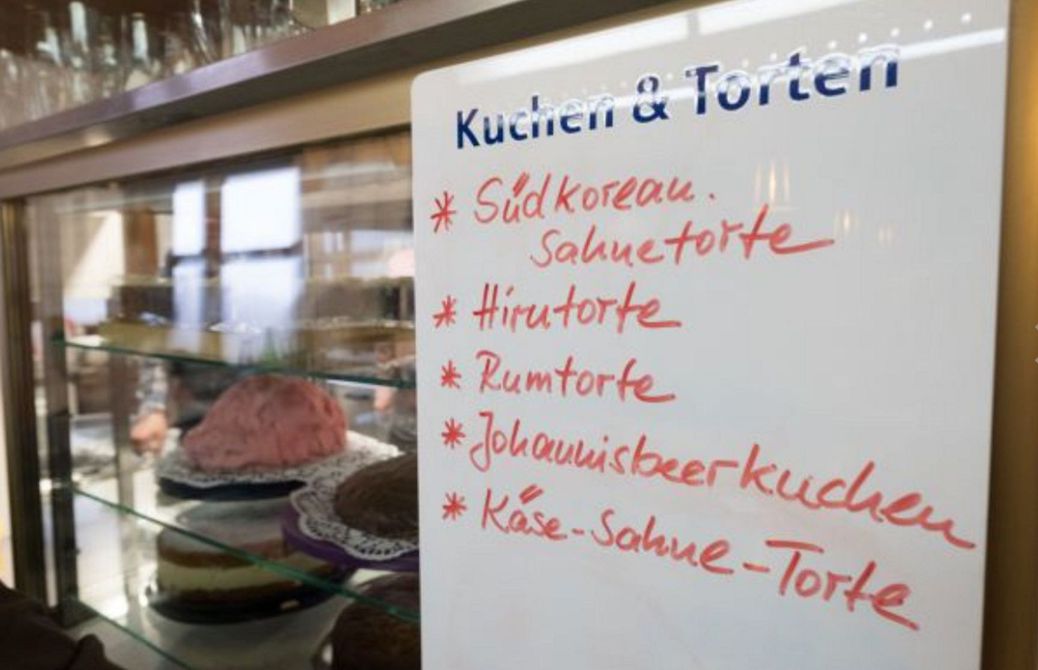 Kuchen & Torten
* Südkorean.
Sahnetorte
* Hirntorte
* Rumtorte
* Johannisbeerkuchen
* Käse-Sahne-Torte